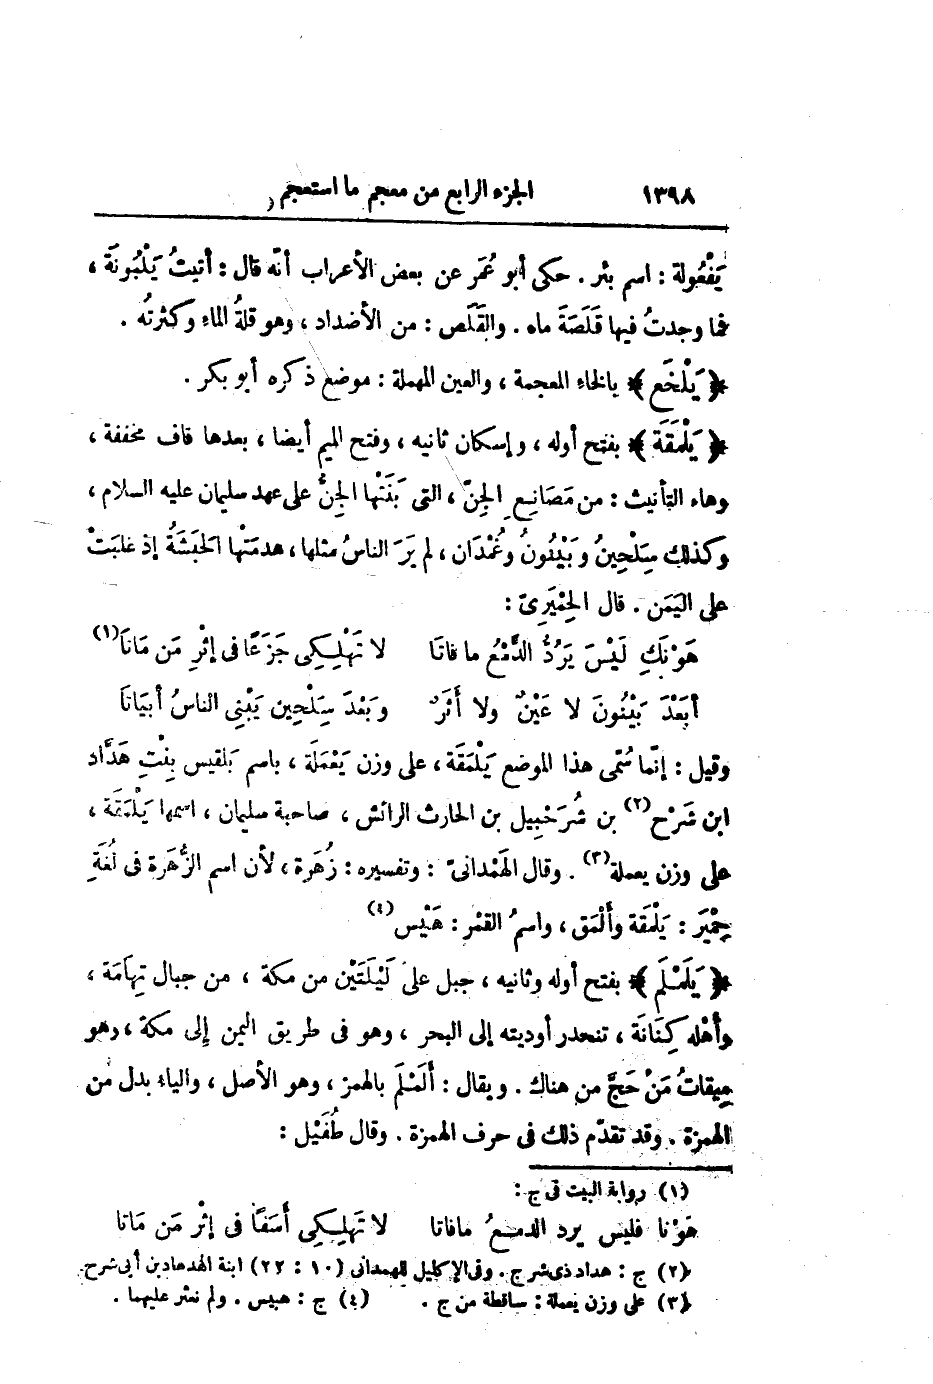 ١٣٩٨ الجزء الرابع من معجم ما استعجم
يَفْعُولة : اسم بئر . حكى أبو عُمَر عن بعض الأعراب أنّه قال : أتيتُ يَلْبُونَة ،
فما وجدتُ فيها قَلَصَةَ ماه . والقَلَص : من الأضداد ، وهو قلةُ الماء وكثرتُه .
﴿ يَلْخَع ﴾ بالخاء المعجمة ، والعين المهملة : موضع ذكره أبو بكر .
﴿ يَلْمَقَة ﴾ بفتح أوله ، وإسكان ثانيه ، وفتح الميم أيضا ، بعدها قاف مخففة ،
وهاء التأنيث : من مَصَانِعِ الجِنّ ، التى بَنَتْها الجِنُّ على عهد سليمان عليه السلام ،
وكذلك سِلْحِينُ وَبَيْنُونُ وغُمْدَان ، لم يَرَ الناسُ مثلها ، هدمَتْها الحَبَشَةُ إذ غلبَتْ
على اليَمَن . قال الحِمْيَرِىّ :
هَوْنَكِ لَيْسَ يَرُدُّ الدَّمْعُ ما فاتَا لا تَهْلِكِى جَزَعًا فى إثْرِ مَن مَاتَا (١)
أبَعْدَ بَيْنُونَ لا عَيْنٌ ولا أَثَرٌ وبَعْدَ سِلْحِين يَبْنِى الناسُ أبيَاتَا
وقيل : إنّما سُمّى هذا الموضع يَلْمَقَة ، على وزن يَعْمَلَة ، باسم بَلقيس بِنْتِ هَدَّاد
ابن شَرْح (٢) بن شُرَحْبِيل بن الحارث الرائش ، صاحبة سليمان ، اسمها يَلْمَقَة ،
على وزن يعملة (٣) . وقال الهَمْدانىّ : وتفسيره : زُهَرة ، لأن اسم الزُّهَرة فى لُغَةِ
حِمْيَر : يَلْمَقة وأَلْمَق ، واسمُ القمَر : هَيْس (٤)
﴿ يَلَمْلَم ﴾ بفتح أوله وثانيه ، جبل على لَيْلَتَيْن من مكة ، من جبال تِهَامَة ،
وأَهْله كِنَانَة ، تنحدر أوديته إلى البحر ، وهو فى طريق اليمن إلى مكة ، وهو
مِيقاتُ مَنْ حَجَّ من هناك . ويقال : أَلَمْلَم بالهمز ، وهو الأصل ، والياء بدل من
الهمزة . وقد تقدّم ذلك فى حرف الهمزة . وقال طُفَيْل :
(١) رواية البيت فى ج :
هَوْنا فليس يرد الدمعُ مافاتا لا تَهلِكِى أَسَفًا فى إثْر مَن مَاتا
(٢) ج : هداد ذى شرح . وفى الإكليل للهمدانى (١٠ : ٢٢) ابنة الهدهاد بن أبى شرح.
(٣) على وزن يعملة : ساقطة من ج . (٤) ج : هبيس . ولم نعثر عليهما .